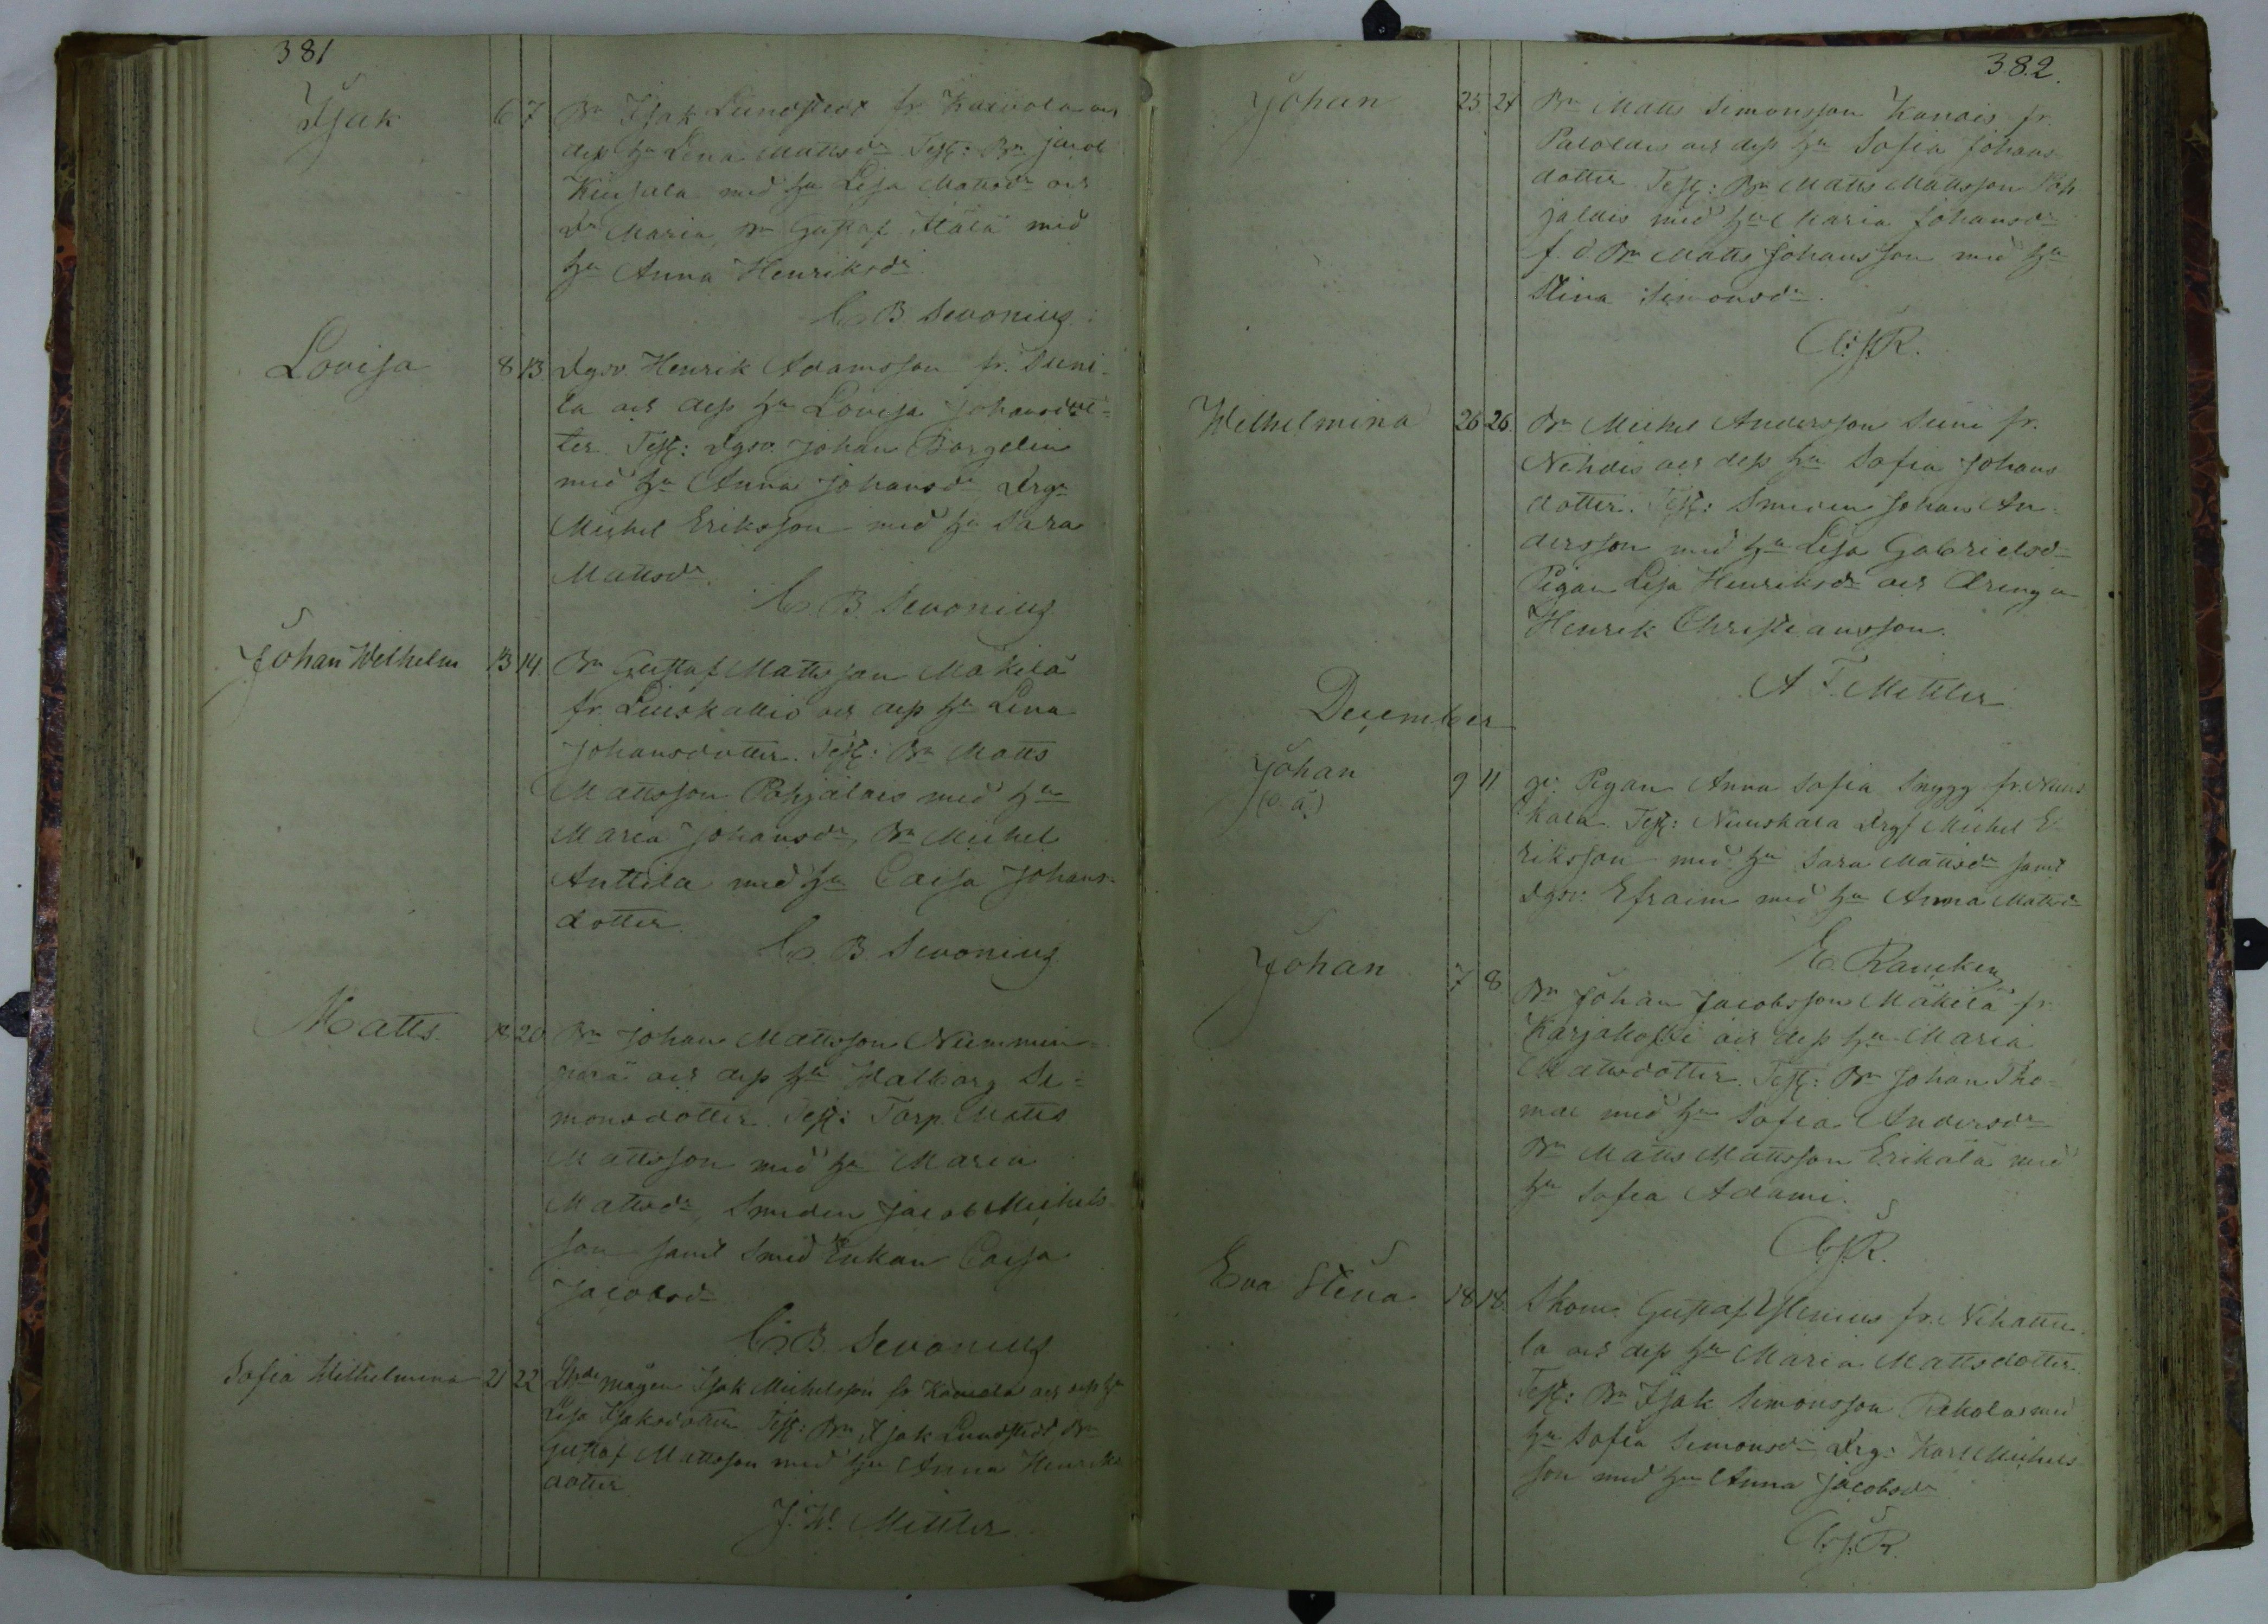 381
Isak 6 7 Bn Isak Lundstedt fr. Kaivola och
dess hu Lena Mattsdr Test: Bn Jacob
med hu Lisa Mattsdr och
Dr Maria, Bn Gustaf Ilälä med
hu Anna Henriksdr
C. B. Sevonius.
Lovisa 8 13 Dgsv. Henrik Adamsson fr. Suni-
la och dess hu Lovisa Johansdot-
ter. Test: Dgsv. Johan Borgelin
med hu Anna Johansdr Drgn
Michel Eriksson med hu Sara
Mattsdr.
C. B. Sevonius.
Johan Wilhelm 13 14. Bn Gustaf Mattsson Mäkilä
fr. Liuskallio och dess hu Lena
Johansdotter. Test: Bn Matts
Mattsson Pohjalais med hu
Maria Johansdr, Bn Michel
Anttila med hu Caisa Johans-
dotter.
C. B. Sevonius.
Matts. 20 Bn Johan Mattsson Nummin-
perä och dess hu Walborg Si-
monsdotter. Test: Torp. Matts
Mattsson med hu Maria
Mattsdr, Smeden Jacob Michels-
son samt Smed Enkan Caisa
Jacobsdr
C. B. Sevonius
Sofia Wilhelmina 21 22 mågen Isak Michelsson fr och dess hu
Lisa Isaksdotter Test: Bn Isak Lundstedt Bn
Gustaf Mattsson med hu Anna Henriks
dotter
J. W. Mittler.
382.
Johan 25 27 Bn Matts Simonsson Kanais fr.
och dess hu Sofia Johans
dotter. Test: Bn Matts Mattsson Poh
jalais med hu Maria Johansdr
f. d. Bn Matts Johansson med hu
Stina Simonsdr.
C. J. R.
Wilhelmina 26 26. Bn Michel Andersson Suni fr.
Nihdis och dess hu Sofia Johans
dotter. Test: Smeden Johan An-
dersson med hu Lisa Gabrielsdr
Pigan Lisa Henriksdr och Drengn
Henrik Christiansson.
A F. Mittler
December
Johan
(o. ä.) 9 11 qv: Pigan Anna Sofia Snygg fr. Nuus
kala. Test: Nuuskala Drgn Michel E-
riksson med hu Sara Mattsdr samt
Dgsv. Efraim med hu Anna Mattsdr
E. Rancken
Johan 7 8 Bn Johan Jacobsson Mäkilä fr.
Karjakoski och dess hu Maria
Mattsdotter. Test: Bn Johan Tho-
med hu Sofia Andersdr
Bn Matts Mattsson Erikälä med
hu Sofia Adami.
C. J. R.
Eva Stina 18 18. Skom. Gustaf fr. Nihattu-
la och dess hu Maria Mattsdotter.
Test: Bn Isak Simonsson med
hu Sofia Simonsdr Drg: Karl Michels-
son med hu Anna Jacobsdr
C. J. R.